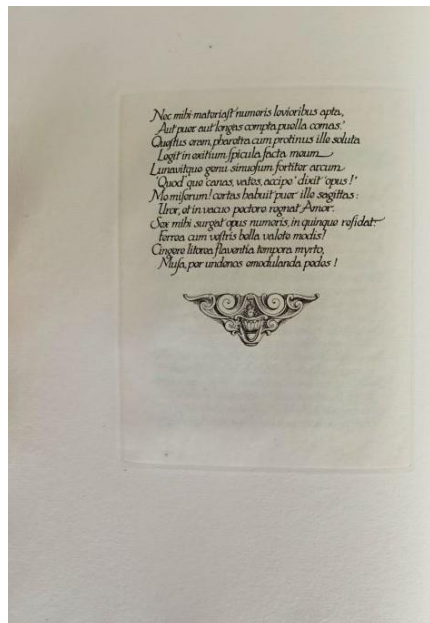 Nec mihi materiaſt numeris levioribus apta,
Aut puer aut longas compta puella comas.'
Queſtus eram, pharetra cum protinus ille soluta
Legit in exitium ſpicula facta meum
Lunavitque genu sinuoſum fortiter arcum
'Quod' que 'canas, vates, accipe' dixit 'opus!'
Me miſerum! certas habuit puer ille sagittas:
Uror, et in vacuo pectore regnat Amor.
Sex mihi surgat opus numeris, in quinque reſidat:
Ferrea cum veſtris bella valete modis!
Cingere litorea flaventia tempora myrto,
Muſa, per undenos emodulanda pedes!